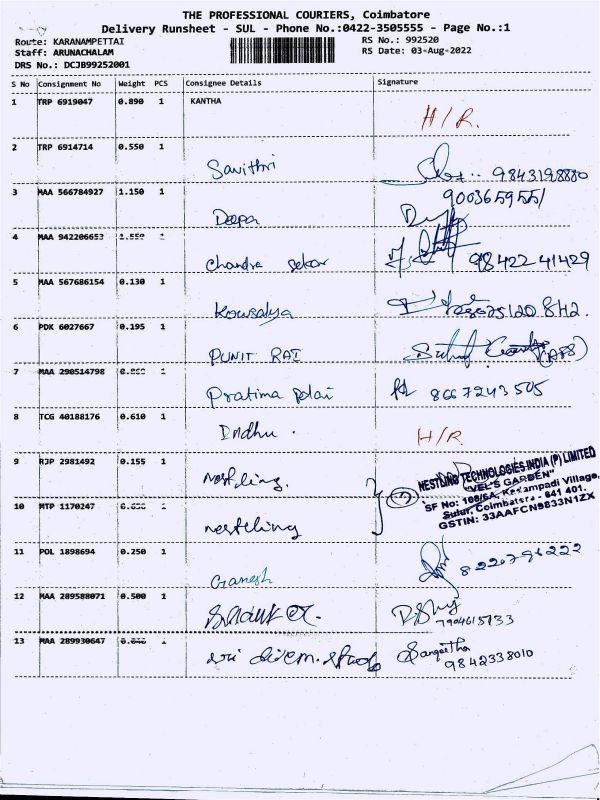 THE PROFESSIONAL COURIERS, Coimbatore
Delivery Runsheet - SUL - Phone No.:0422-3505555 - Page No.:1
Route: KARANAMPETTAI RS No.: 992520
Staff: ARUNACHALAM RS Date: 03-Aug-2022
DRS No.: DCJB99252001
S No Consignment No Weight PCS Consignee Details Signature
1 TRP 6919047 0.890 1 KANTHA
H/R.
2 TRP 6914714 0.550 1
Savithri 9843198880
3 MAA 566784927 1.150 1
Deepa
4 MAA 942206653 1
Chandra Sekar 98422 41429
5 MAA 567686154 0.130 1
Kowsalya
6 PDK 6027667 0.195 1
PUNIT RAI
7 MAA 290514798
Pratima 8667243505
8 TCG 40188176 0.610 1
Indhu. H/R
9 RJP 2981492 0.155 1
Nestling. NESTLING TECHNOLOGIES INDIA (P) LIMITED
"VEL'S GARDEN"
SF No: Village,
Sulur, Coimbatore - 641 401.
GSTIN: 33AAFCN9833N1ZX
10 MTP 1170247
nestling
11 POL 1898694 0.250 1
Ganesh
12 MAA 289588071 0.500 1
13 MAA 289930647
Sri Sangeetha
9842338010